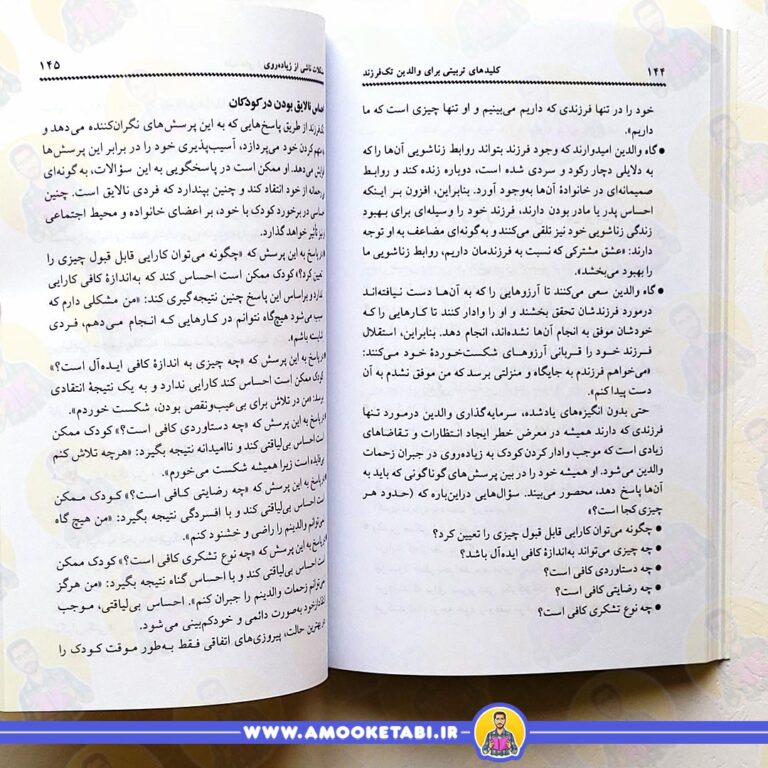 ۱۴۴
کلیدهای تربیتی برای والدین تک‌فرزند
خود را در تنها فرزندی که داریم می‌بینیم و او تنها چیزی است که ما
داریم».
● گاه والدین امیدوارند که وجود فرزند بتواند روابط زناشویی آن‌ها را که
به دلایلی دچار رکود و سردی شده است، دوباره زنده کند و روابط
صمیمانه‌ای در خانوادهٔ آن‌ها به‌وجود آورد. بنابراین، افزون بر اینکه
احساس پدر یا مادر بودن دارند، فرزند خود را وسیله‌ای برای بهبود
زندگی زناشویی خود نیز تلقی می‌کنند و به‌گونه‌ای مضاعف به او توجه
دارند: «عشق مشترکی که نسبت به فرزندمان داریم، روابط زناشویی ما
را بهبود می‌بخشد».
● گاه والدین سعی می‌کنند تا آرزوهایی را که به آن‌ها دست نیافته‌اند
درمورد فرزندشان تحقق بخشند و او را وادار کنند تا کارهایی را که
خودشان موفق به انجام آن‌ها نشده‌اند، انجام دهد. بنابراین، استقلال
فرزند خود را قربانی آرزوهای شکست‌خوردهٔ خود می‌کنند:
«می‌خواهم فرزندم به جایگاه و منزلتی برسد که من موفق نشدم به آن
دست پیدا کنم».
حتی بدون انگیزه‌های یادشده، سرمایه‌گذاری والدین درمورد تنها
فرزندی که دارند همیشه در معرض خطر ایجاد انتظارات و تقاضاهای
زیادی است که موجب وادار کردن کودک به زیاده‌روی در جبران زحمات
والدین می‌شود. او همیشه خود را در بین پرسش‌های گوناگونی که باید به
آن‌ها پاسخ دهد، محصور می‌بیند. سؤال‌هایی دراین‌باره که (حدود هر
چیزی کجا است؟»
● چگونه می‌توان کارایی قابل قبول چیزی را تعیین کرد؟
● چه چیزی می‌تواند به‌اندازهٔ کافی ایده‌آل باشد؟
● چه دستاوردی کافی است؟
● چه رضایتی کافی است؟
● چه نوع تشکری کافی است؟
ناشی از زیاده‌روی
۱۴۵
نالایق بودن در کودکان
از طریق پاسخ‌هایی که به این پرسش‌های نگران‌کننده می‌دهد و
کردن خود می‌پردازد، آسیب‌پذیری خود را در برابر این پرسش‌ها
می‌دهد. او ممکن است در پاسخگویی به این سؤالات، به‌گونه‌ای
از خود انتقاد کند و چنین بپندارد که فردی نالایق است. چنین
در برخورد کودک با خود، بر اعضای خانواده و محیط اجتماعی
نیز تأثیر خواهد گذارد.
پاسخ به این پرسش که «چگونه می‌توان کارایی قابل قبول چیزی را
تعیین کرد؟» کودک ممکن است احساس کند که به‌اندازهٔ کافی کارایی
ندارد و براساس این پاسخ چنین نتیجه‌گیری کند: «من مشکلی دارم که
سبب می‌شود هیچ‌گاه نتوانم در کارهایی که انجام می‌دهم، فردی
شایسته باشم».
در پاسخ به این پرسش که «چه چیزی به اندازهٔ کافی ایده‌آل است؟»
کودک ممکن است احساس کند کارایی ندارد و به یک نتیجهٔ انتقادی
برسد: «من در تلاش برای بی‌عیب‌ونقص بودن، شکست خوردم».
در پاسخ به این پرسش که «چه دستاوردی کافی است؟» کودک ممکن
است احساس بی‌لیاقتی کند و ناامیدانه نتیجه بگیرد: «هرچه تلاش کنم
بی‌فایده است زیرا همیشه شکست می‌خورم».
در پاسخ به این پرسش که «چه رضایتی کافی است؟» کودک ممکن
است احساس بی‌لیاقتی کند و با افسردگی نتیجه بگیرد: «من هیچ گاه
نمی‌توانم والدینم را راضی و خشنود کنم».
در پاسخ به این پرسش که «چه نوع تشکری کافی است؟» کودک ممکن
است احساس بی‌لیاقتی کند و با احساس گناه نتیجه بگیرد: «من هرگز
نمی‌توانم زحمات والدینم را جبران کنم». احساس بی‌لیاقتی، موجب
خود به‌صورت دائمی و خودکم‌بینی می‌شود.
بهترین حالت، پیروزی‌های اتفاقی فقط به‌طور موقت کودک را
WWW.AMOOKETABI.IR